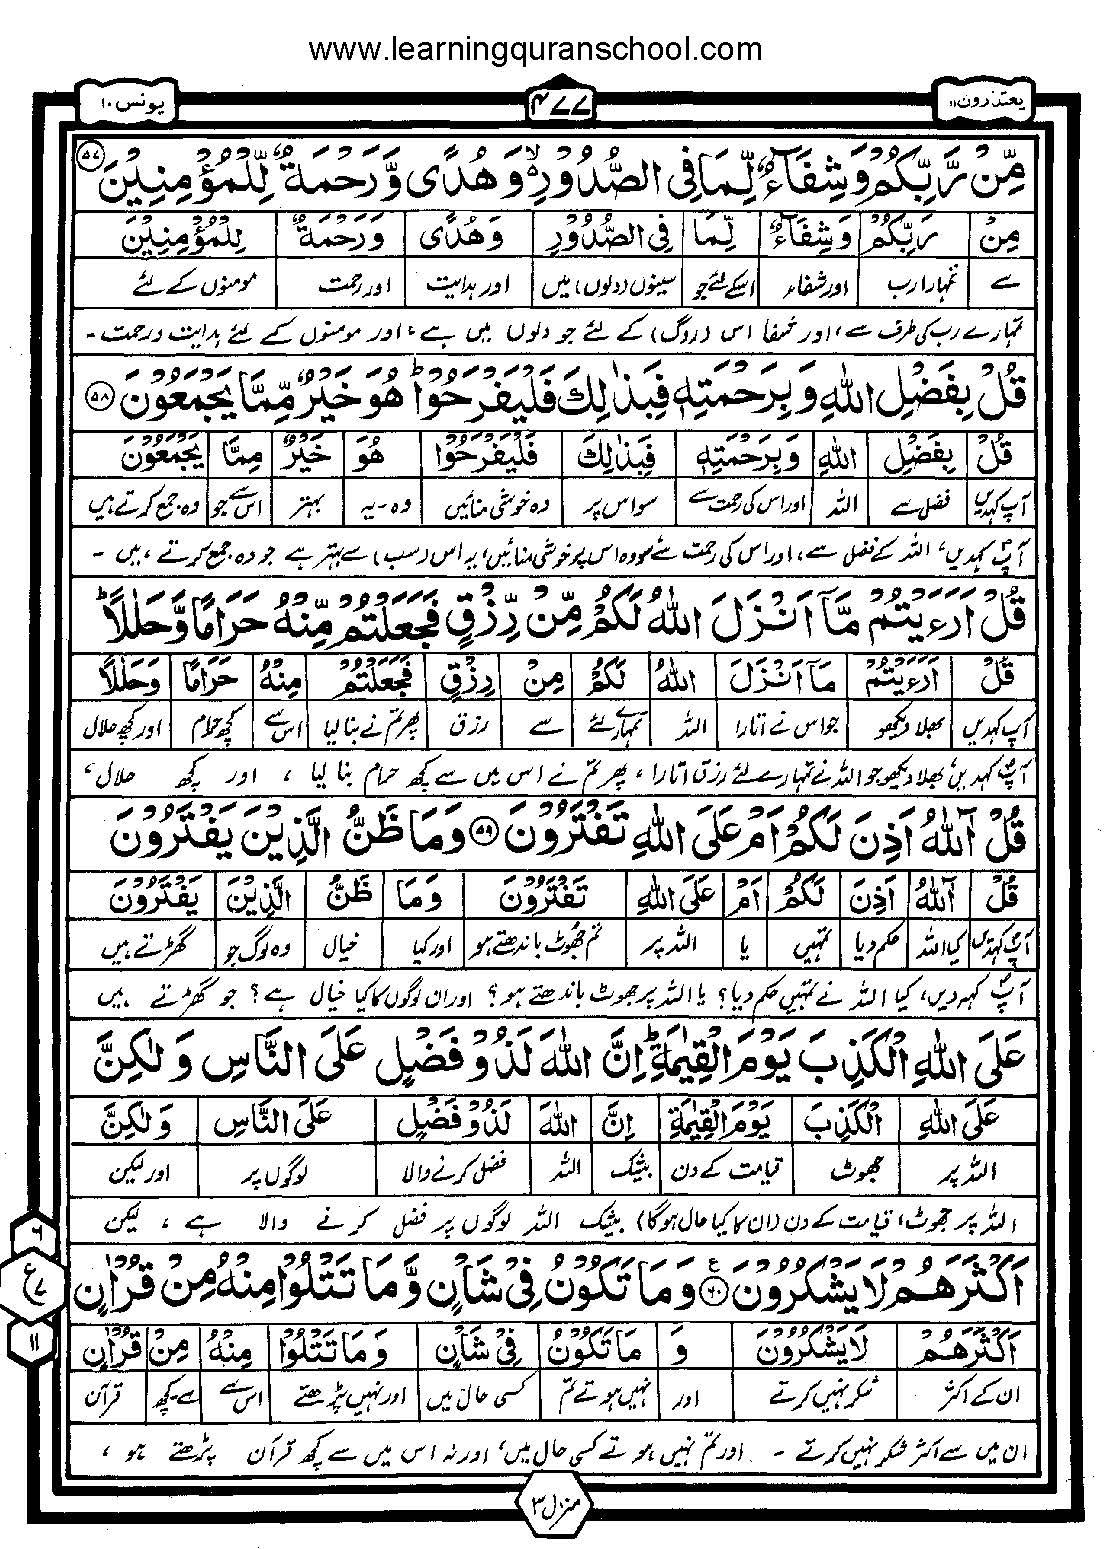 www.learningquranschool.com
یعتذرون ۱۱
۴۷۷
یونس ۱۰
مِّنْ رَّبِّكُمْ وَشِفَآءٌ لِّمَا فِی الصُّدُوْرِ ۙ وَهُدًی وَّرَحْمَةٌ لِّلْمُؤْمِنِیْنَ ۵۷
مِنْ رَبِّكُمْ وَشِفَآءٌ لِّمَا فِی الصُّدُوْرِ وَهُدًی وَرَحْمَةٌ لِلْمُؤْمِنِیْنَ
سے تمہارا رب اور شفاء اسکے لئے جو سینوں (دلوں) میں اور ہدایت اور رحمت مومنوں کے لئے
تمہارے رب کی طرف سے، اور شفا اس (روگ) کے لئے جو دلوں میں ہے، اور مومنوں کے لئے ہدایت ورحمت۔
قُلْ بِفَضْلِ اللّٰهِ وَبِرَحْمَتِهٖ فَبِذٰلِكَ فَلْیَفْرَحُوْا ؕ هُوَ خَیْرٌ مِّمَّا یَجْمَعُوْنَ ۵۸
قُلْ بِفَضْلِ اللّٰهِ وَبِرَحْمَتِهٖ فَبِذٰلِكَ فَلْیَفْرَحُوْا هُوَ خَیْرٌ مِمَّا یَجْمَعُوْنَ
آپ کہدیں فضل سے اللہ اور اس کی رحمت سے سو اس پر وہ خوشی منائیں وہ۔یہ بہتر اس سے جو وہ جمع کرتے ہیں
آپ کہدیں، اللہ کے فضل سے، اور اس کی رحمت سے، سو وہ اس پر خوشی منائیں، یہ اس (سب) سے بہتر ہے جو وہ جمع کرتے ہیں۔
قُلْ اَرَءَیْتُمْ مَّاۤ اَنْزَلَ اللّٰهُ لَكُمْ مِّنْ رِّزْقٍ فَجَعَلْتُمْ مِّنْهُ حَرَامًا وَّحَلٰلًا ؕ
قُلْ اَرَءَیْتُمْ مَاۤ اَنْزَلَ اللّٰهُ لَكُمْ مِنْ رِزْقٍ فَجَعَلْتُمْ مِنْهُ حَرَامًا وَحَلٰلًا
آپ کہدیں بھلا دیکھو جو اس نے اتارا اللہ تمہارے لئے سے رزق پھر تم نے بنا لیا اس سے کچھ حرام اور کچھ حلال
آپ کہدیں، بھلا دیکھو جو اللہ نے تمہارے لئے رزق اتارا، پھر تم نے اس میں سے کچھ حرام بنا لیا، اور کچھ حلال،
قُلْ آٰللّٰهُ اَذِنَ لَكُمْ اَمْ عَلَی اللّٰهِ تَفْتَرُوْنَ ۵۹ وَمَا ظَنُّ الَّذِیْنَ یَفْتَرُوْنَ
قُلْ آٰللّٰهُ اَذِنَ لَكُمْ اَمْ عَلَی اللّٰهِ تَفْتَرُوْنَ وَمَا ظَنُّ الَّذِیْنَ یَفْتَرُوْنَ
آپ کہدیں کیا اللہ حکم دیا تمہیں یا اللہ پر تم جھوٹ باندھتے ہو اور کیا خیال وہ لوگ جو گھڑتے ہیں
آپ کہہ دیں، کیا اللہ نے تمہیں حکم دیا؟ یا اللہ پر جھوٹ باندھتے ہو؟ اور ان لوگوں کا کیا خیال ہے؟ جو گھڑتے ہیں
عَلَی اللّٰهِ الْكَذِبَ یَوْمَ الْقِیٰمَةِ ؕ اِنَّ اللّٰهَ لَذُوْ فَضْلٍ عَلَی النَّاسِ وَلٰكِنَّ
عَلَی اللّٰهِ الْكَذِبَ یَوْمَ الْقِیٰمَةِ اِنَّ اللّٰهَ لَذُوْ فَضْلٍ عَلَی النَّاسِ وَلٰكِنَّ
اللہ پر جھوٹ قیامت کے دن بیشک اللہ فضل کرنے والا لوگوں پر اور لیکن
اللہ پر جھوٹ، قیامت کے دن (ان کا کیا حال ہوگا) بیشک اللہ لوگوں پر فضل کرنے والا ہے، لیکن
اَكْثَرَهُمْ لَا یَشْكُرُوْنَ ۶۰ ع وَمَا تَكُوْنُ فِیْ شَاْنٍ وَّمَا تَتْلُوْا مِنْهُ مِنْ قُرْاٰنٍ
اَكْثَرَهُمْ لَا یَشْكُرُوْنَ وَ مَا تَكُوْنُ فِیْ شَاْنٍ وَمَا تَتْلُوْا مِنْهُ مِنْ قُرْاٰنٍ
ان کے اکثر شکر نہیں کرتے اور نہیں ہوتے تم کسی حال میں اور نہیں پڑھتے اس سے سے۔کچھ قرآن
ان میں سے اکثر شکر نہیں کرتے۔ اور تم نہیں ہوتے کسی حال میں، اور نہ اس میں سے کچھ قرآن پڑھتے ہو،
۶
ع ۷
۱۱
منزل ۳